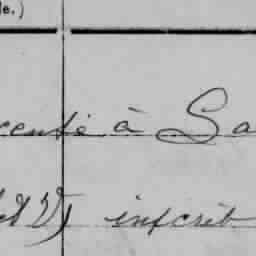 le.)
censé à Sa
inscrit